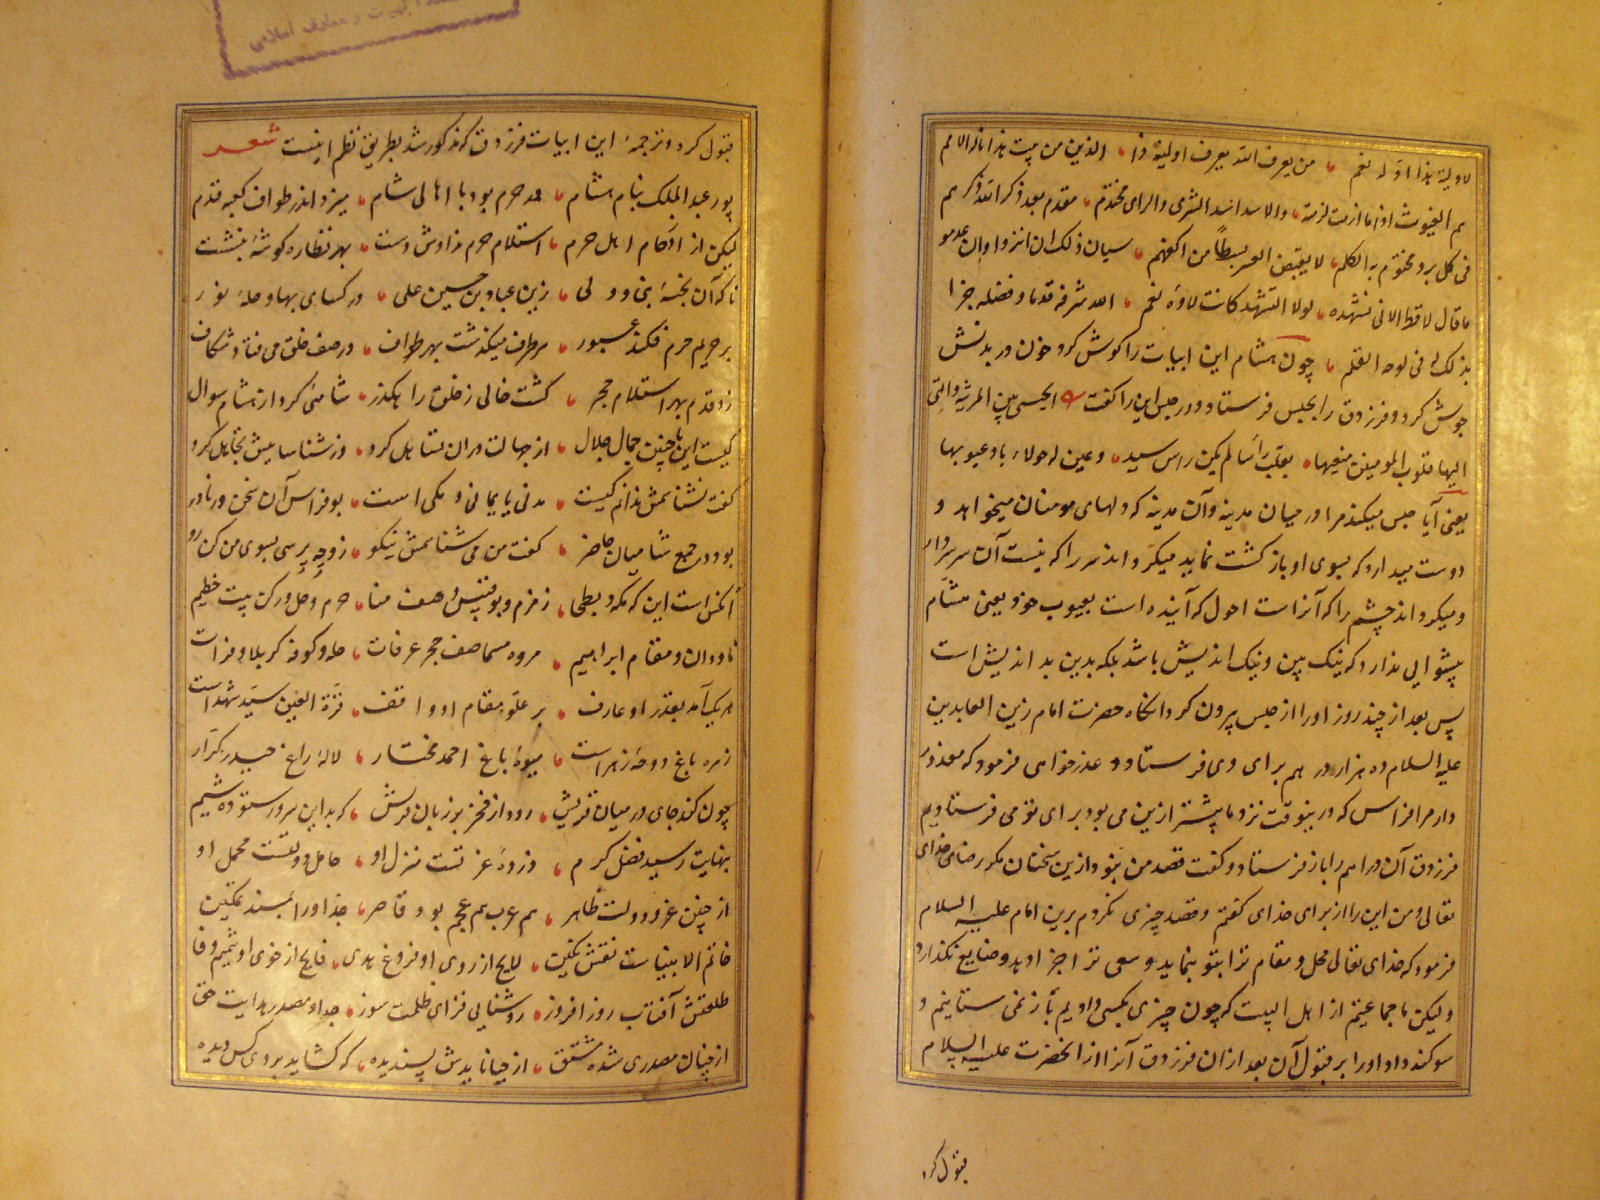 لاولیة هذا اوله نعم من یعرف الله یعرف اولیة ذا الذین من بیت هذا ناله الامم
هم الغیوث اذا ما ازمت لزمة والاسد اسد الشری والرای محتدم مقدم بعد ذکر الله ذکرهم
فی کل برو مختوم به الکلم لا یقبض العسر بسطاً من اکفهم سیان ذلک ان اثروا وان عدموا
ما قال لا قط الا فی تشهده لولا التشهد کانت لاؤه نعم الله شرفه قدما وفضله جرا
بذلک له فی لوحه القلم چون هشام این ابیات را گوش کرد خون در بدنش
جوش کرد و فرزدق را بحبس فرستاد و در حبس این را گفت ایحبسی بین المدینة والتی
الیها قلوب المومنین منیبها یقلب راسا لم یکن راس سید وعین له حولاء باد عیوبها
یعنی آیا حبس میکند مرا در میان مدینه و آن مدینه که دلهای مومنان میخواهد و
دوست میدارد که بسوی او بازگشت نماید میگرداند سر را که نیست آن سر سردار
و میگرداند چشم را که آنراست احول که آینده است بعیوب خود یعنی هشام
پیشوایی ندارد که نیک بین و نیک اندیش باشد بلکه بدبین بد اندیش است
پس بعد از چند روز او را از حبس بیرون کرد آنگاه حضرت امام زین العابدین
علیه السلام ده هزار درهم برای وی فرستاد و عذرخواهی فرمود که معذور
دار مرا فراس که درینوقت نزد ما بیشتر ازین می بود برای تو می فرستادیم
فرزدق آن دراهم را باز فرستاد و گفت قصد من نبود ازین سخنان مگر رضای خدای
تعالی و من این را از برای خدای گفتم و قصد چیزی نکردم برین امام علیه السلام
فرمود که خدای تعالی محل و مقام ترا بتو بنماید و سعی ترا جزا دهد و ضایع نگذارد
ولیکن ما جماعتیم از اهل البیت که چون چیزی بکسی دادیم باز نمی ستانیم و
سوگند داد او را بر قبول آن بعد از آن فرزدق آنرا از آنحضرت علیه السلام
قبول کرد
قبول کرد و ترجمهٔ این ابیات فرزدق که مذکور شد بطریق نظم اینست شعر
پور عبدالملک بنام هشام در حرم بود با اهالی شام میزد اندر طواف کعبه قدم
لیکن از ازدحام اهل حرم استلام حرم نداوش دست بهر نظاره گوشهٔ بنشست
ناگه آن نخبهٔ نبی و ولی زین عباد بن حسین علی در کسای بها و حلهٔ نور
بر حریم حرم فکند عبور هر طرف میگذشت بهر طواف در صف خلق می فتاد شکاف
زد قدم بهر استلام حجر گشت خالی ز خلق راهگذر شامئی کرد از هشام سوال
کیست این با چنین جمال جلال از جهالت در آن تساهل کرد وز شناسائیش تجاهل کرد
گفت نشناسمش ندانم کیست مدنی یا یمانی و مکی است بوفراس آن سخن ور نادر
بود در جمع شامیان حاضر گفت من می شناسمش نیکو زو چه پرسی بسوی من کن رو
آنکس است این که مکه و بطحا زمزم و بوقبیس و خیف منا حرم و حل و رکن بیت حطیم
ناودان و مقام ابراهیم مروه مسعا صفا حجر عرفات حله و کوفه کربلا و فرات
هر یک آمد بقدر او عارف بر علو مقام او واقف قرة العین سید شهداست
زهره باغ دوحهٔ زهراست میوهٔ باغ احمد مختار لالهٔ راغ حیدر کرار
چون کند جای در میان قریش رود از فخر بر زبان قریش که بداین سرور ستوده شیم
بنهایت رسید فضل کرم ذروهٔ عزتست منزل او حامل دولتست محمل او
از چنین عز و دولت ظاهر هم عرب هم عجم بود قاصر جد او را بمسند تمکین
خاتم الانبیاست نقش نگین لایح از روی او فروغ هدی فایح از خوی او شمیم وفا
طلعتش آفتاب روز افروز روشنایی فزای ظلمت سوز جد او مصدر هدایت حق
از چنان مصدری شده مشتق از حیا نایدش پسندیده که گشاید بروی کس دیده